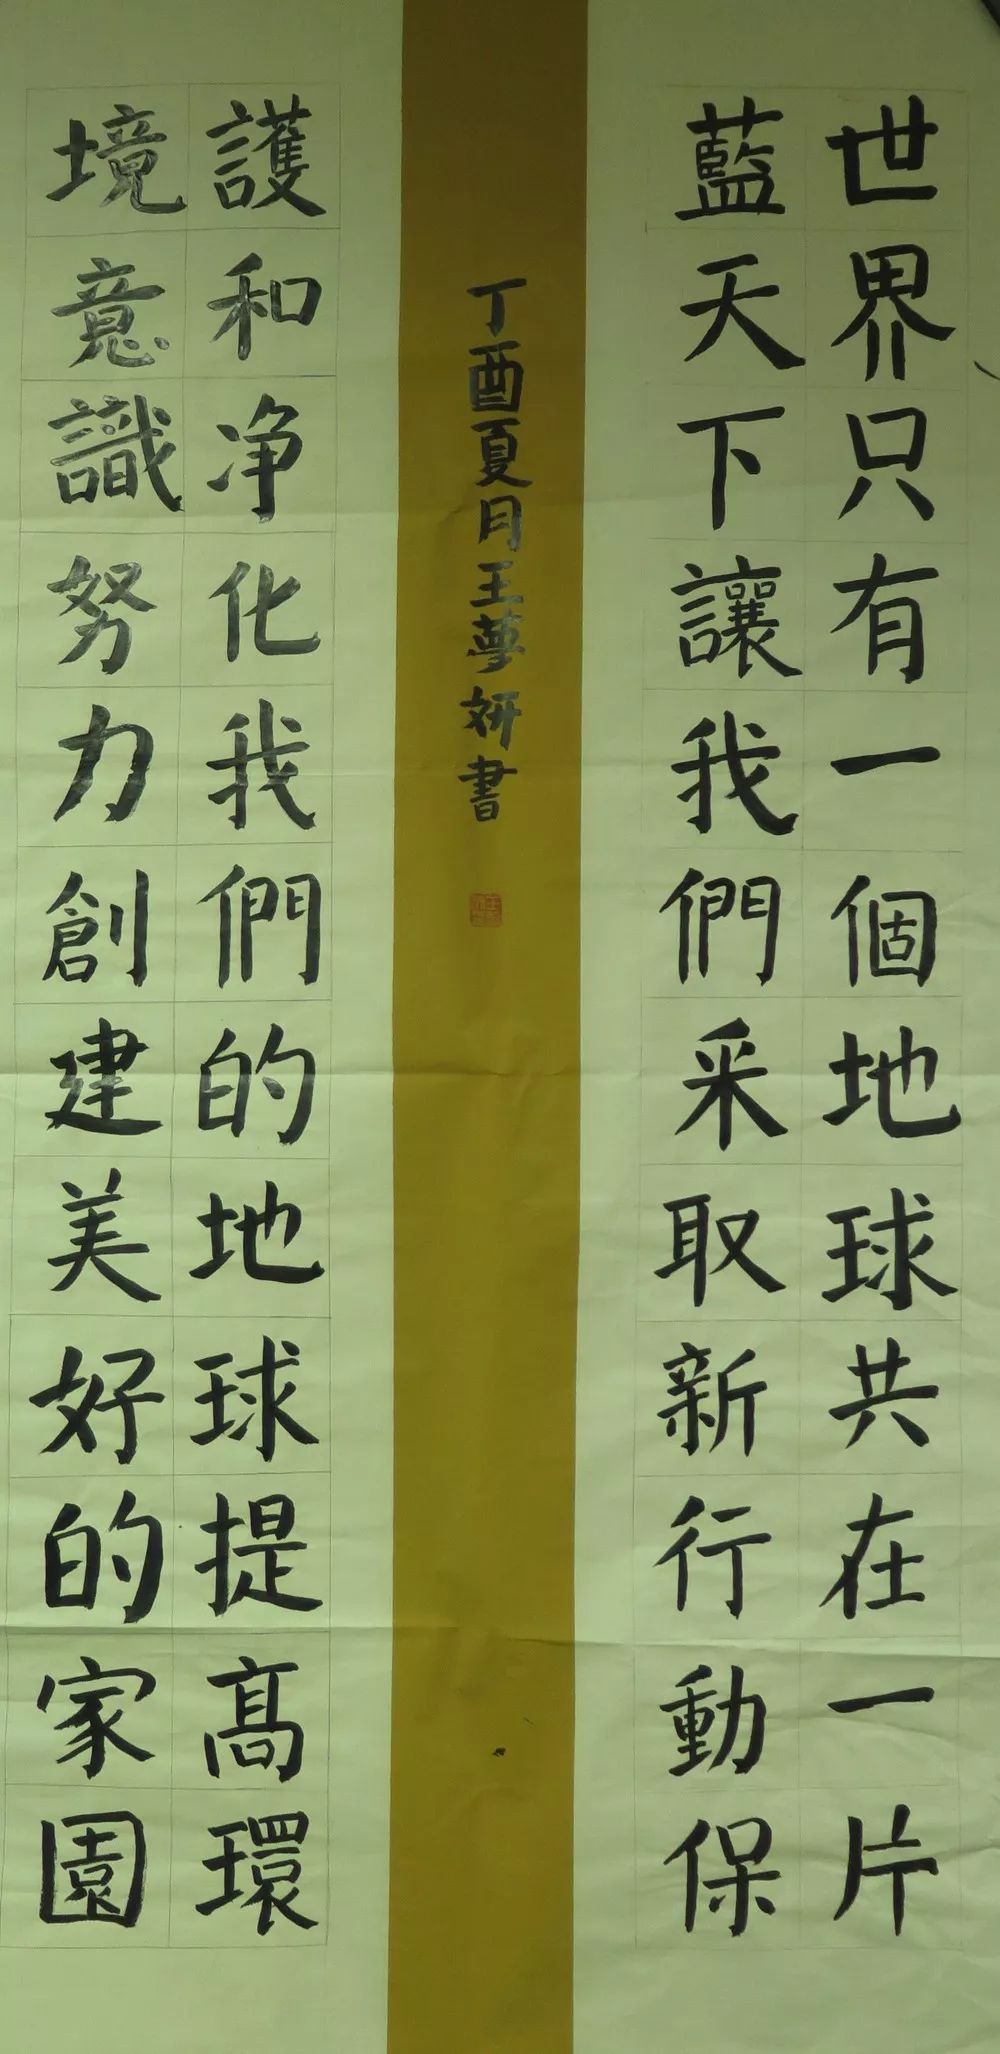 世界只有一個地球共在一片
藍天下讓我們采取新行動保
護和净化我們的地球提高環
境意識努力創建美好的家園
丁酉夏月王夢妍書